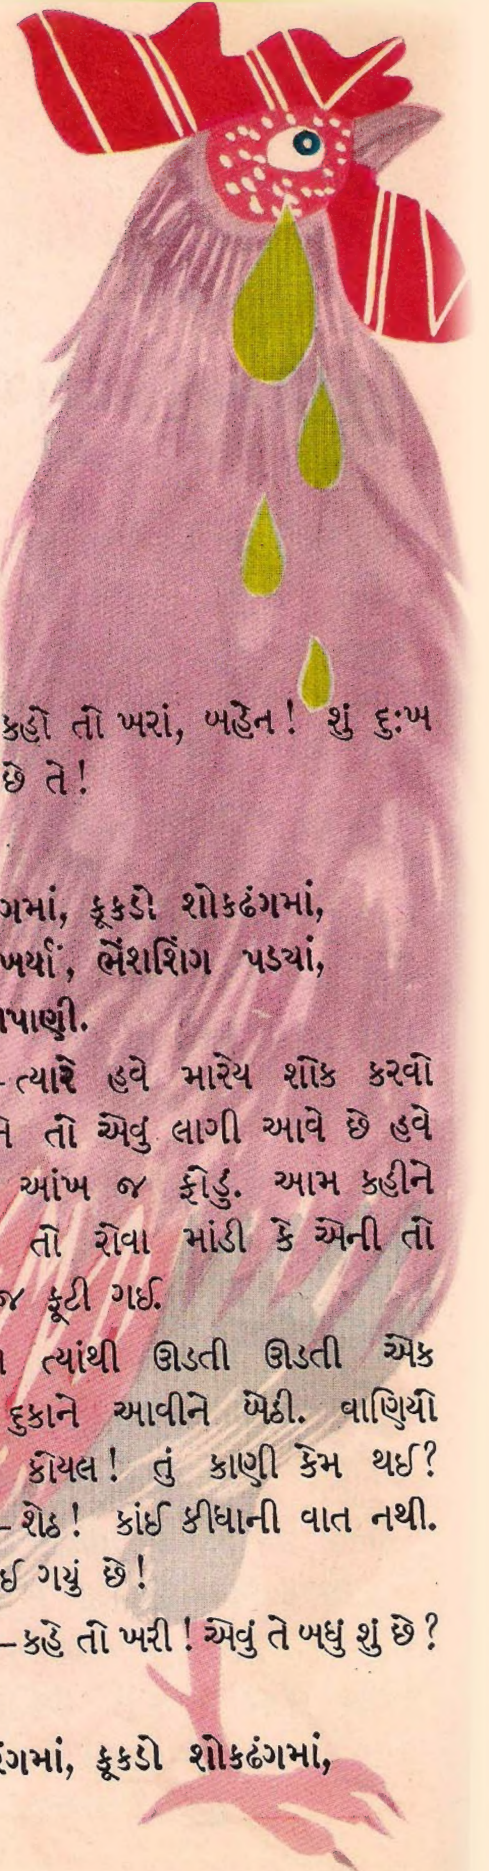 કહો તો ખરાં, બહેન! શું દુ:ખ
છે તે!
ગમાં, કૂકડો શોકઢંગમાં,
ખર્યાં, ભેંશશિંગ પડ્યાં,
પાણી.
–ત્યારે હવે મારેય શોક કરવો
તો એવું લાગી આવે છે હવે
આંખ જ ફોડું. આમ કહીને
તો રોવા માંડી કે એની તો
જ ફૂટી ગઈ.
ત્યાંથી ઊડતી ઊડતી એક
દુકાને આવીને બેઠી. વાણિયો
કોયલ! તું કાણી કેમ થઈ?
–શેઠ! કાંઈ કીધાની વાત નથી.
ઈ ગયું છે!
–કહે તો ખરી! એવું તે બધું શું છે?
ગમાં, કૂકડો શોકઢંગમાં,